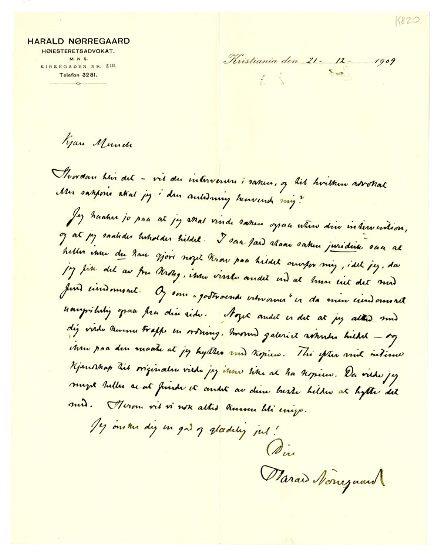 K820
HARALD NØRREGAARD
HØIESTERETSADVOKAT.
M. N. S.
KIRKEGADEN NR.
Telefon 3281.
Kristiania den 21 - 12 - 1909
Kjære Munch
Hvordan blir det – vil du intervenere i saken, og til hvilken advokat
skal jeg i den anledning henvende mig?
Jeg haaber jo paa at jeg skal vinde saken ogsaa uten din intervention,
og at jeg saaledes beholder billedet. I saa fald staar saken juridisk saa at
heller ikke du kan gjøre noget krav paa billedet overfor mig, idet jeg, da
jeg fik det av fru Krohg, ikke visste andet end at hun eiet det med
fuld eiendomsret. Og som "godtroende erhverver" er da min eiendomsret
uangribelig ogsaa fra din side. Noget andet er det at jeg altid med
dig vilde kunne træffe en ordning, hvorved galeriet billedet – og
ikke paa den maate at jeg hyttes med kopien. Thi efter mit intime
kjendskap til originalen vilde jeg ikke like at ha kopien. Da vilde jeg
meget heller se at finde et andet av dine beste billeder at bytte det
med. Herom vil vi nok altid kunne bli enige.
Jeg ønsker dig en god og glædelig jul!
Din
Harald Nørregaard